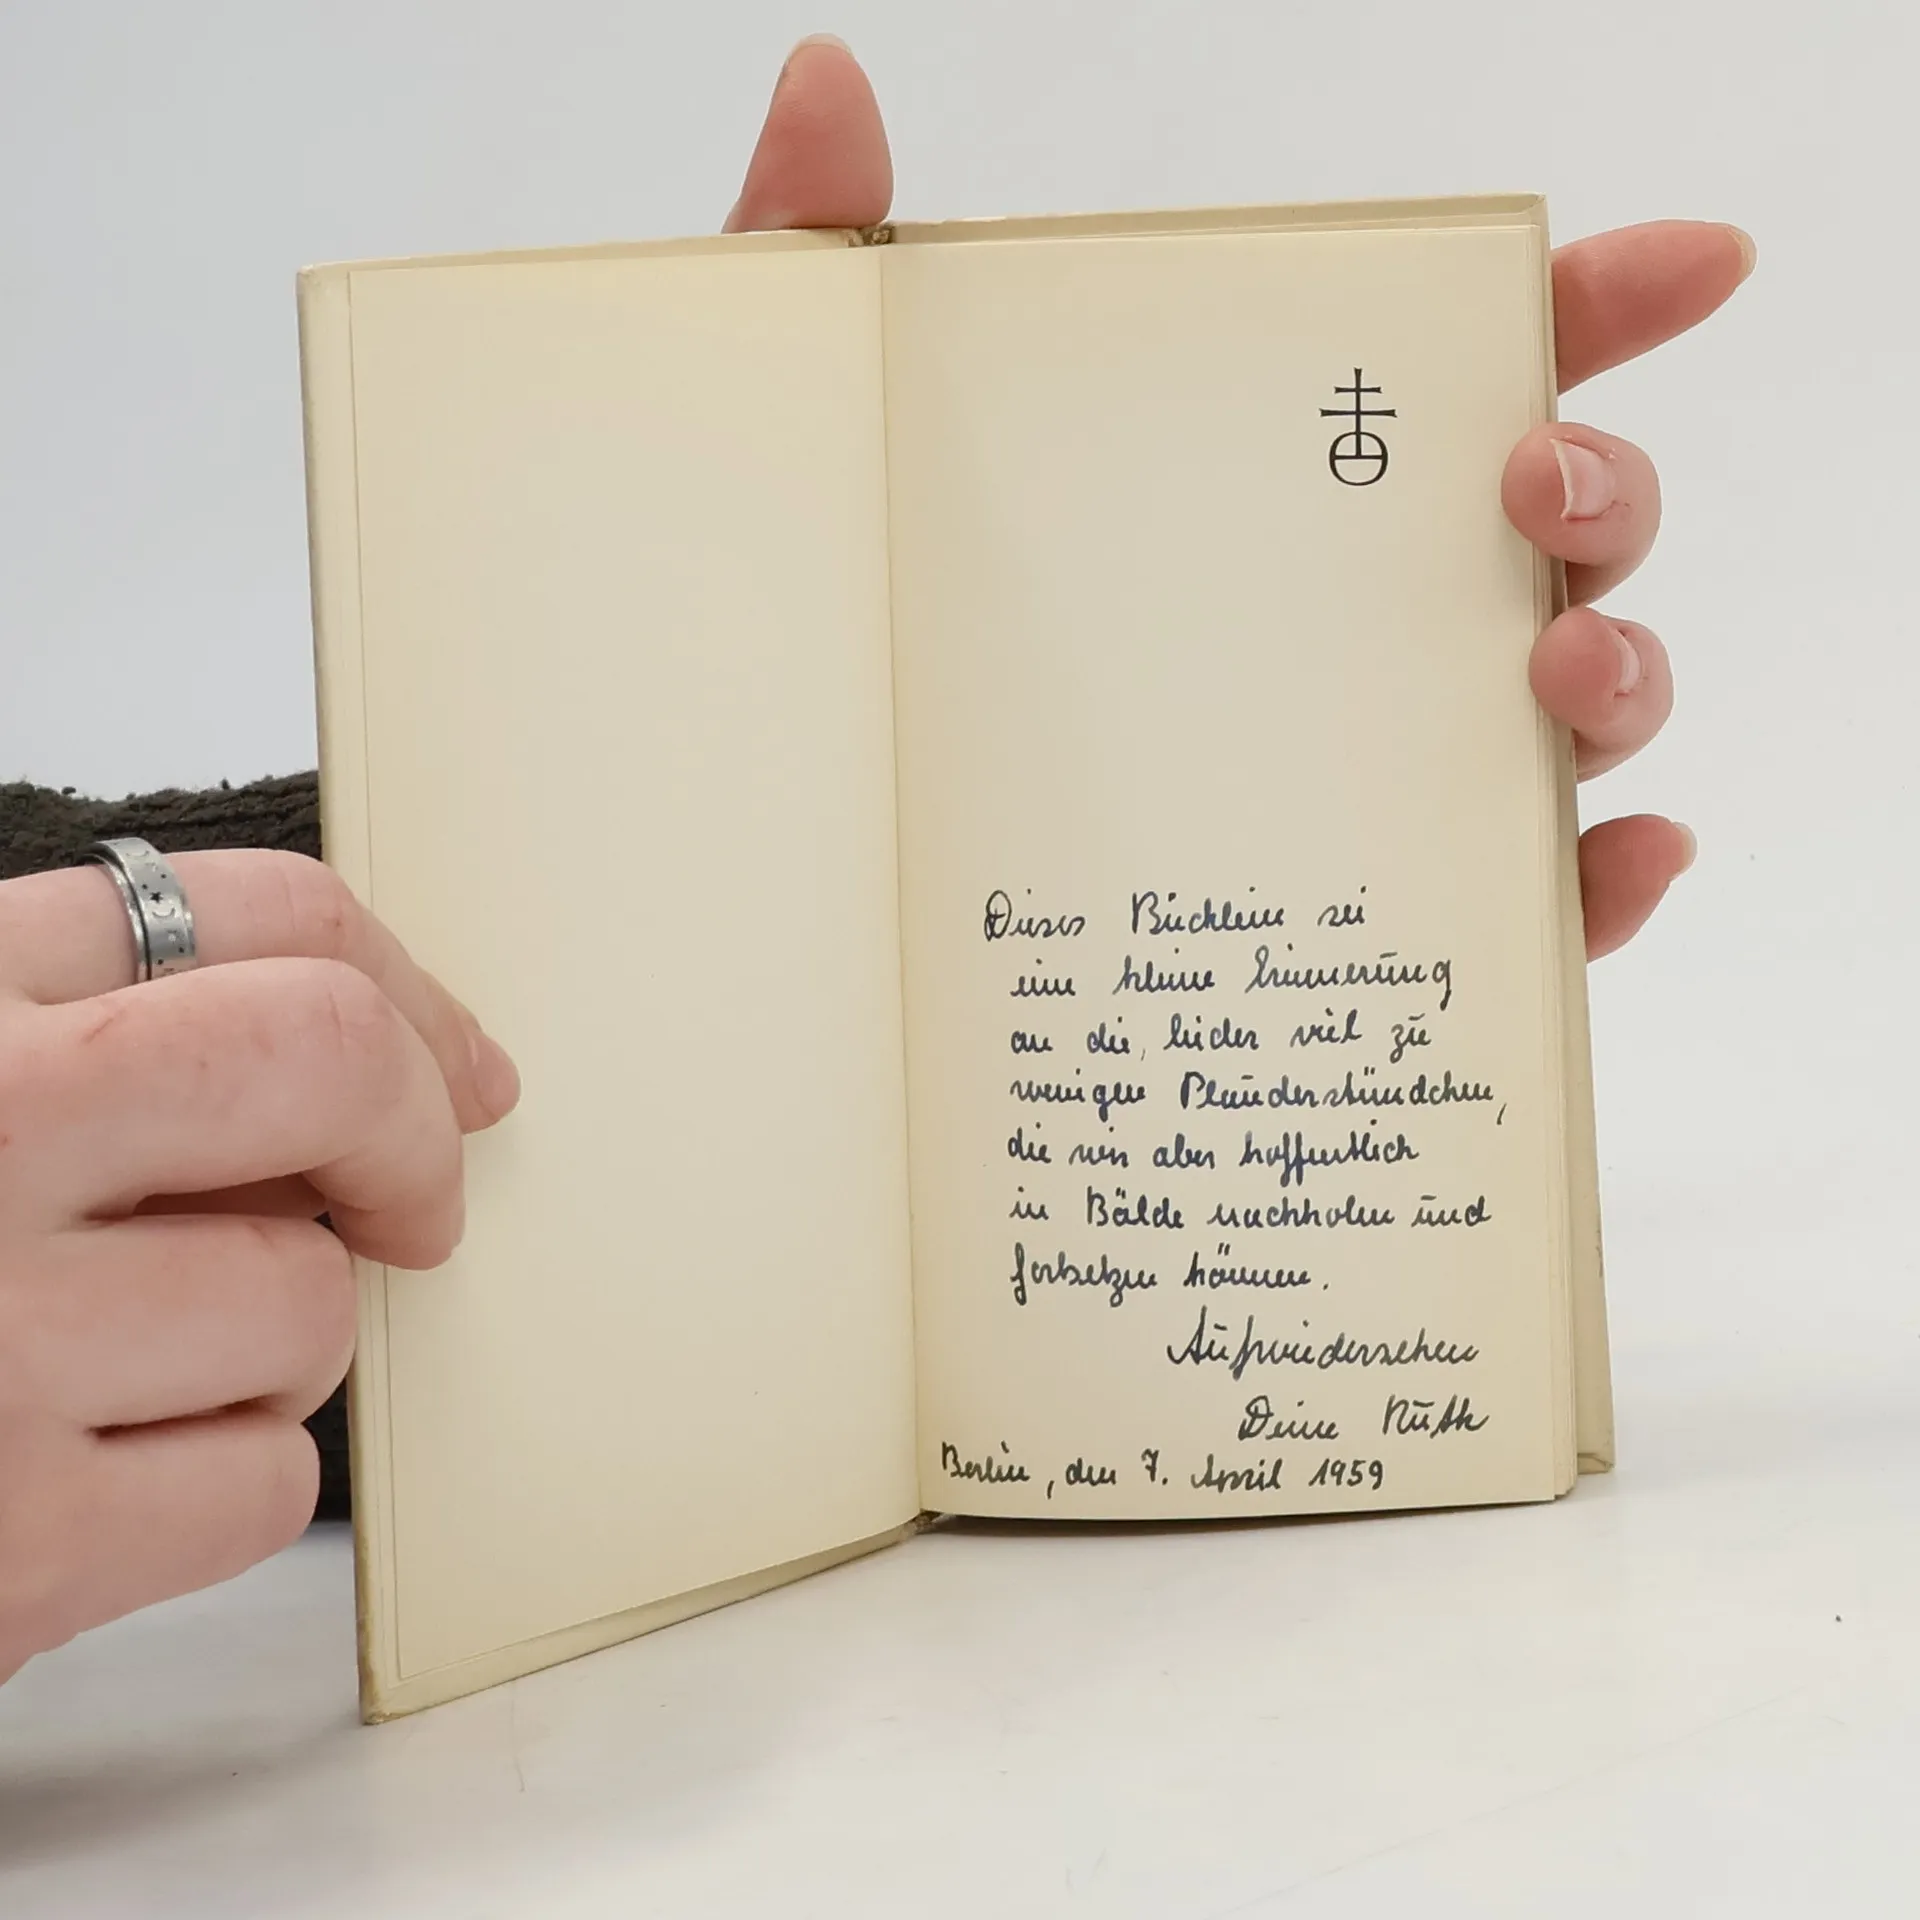 Dieses Büchlein sei
eine kleine Erinnerung
an die, leider viel zu
wenigen Plauderstündchen,
die wir aber hoffentlich
in Bälde nachholen und
fortsetzen können.
Aufwiedersehen
Deine Ruth
Berlin, den 7. April 1959